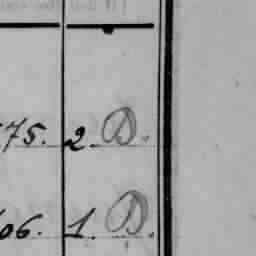 75. 2. D.
06. 1. D.